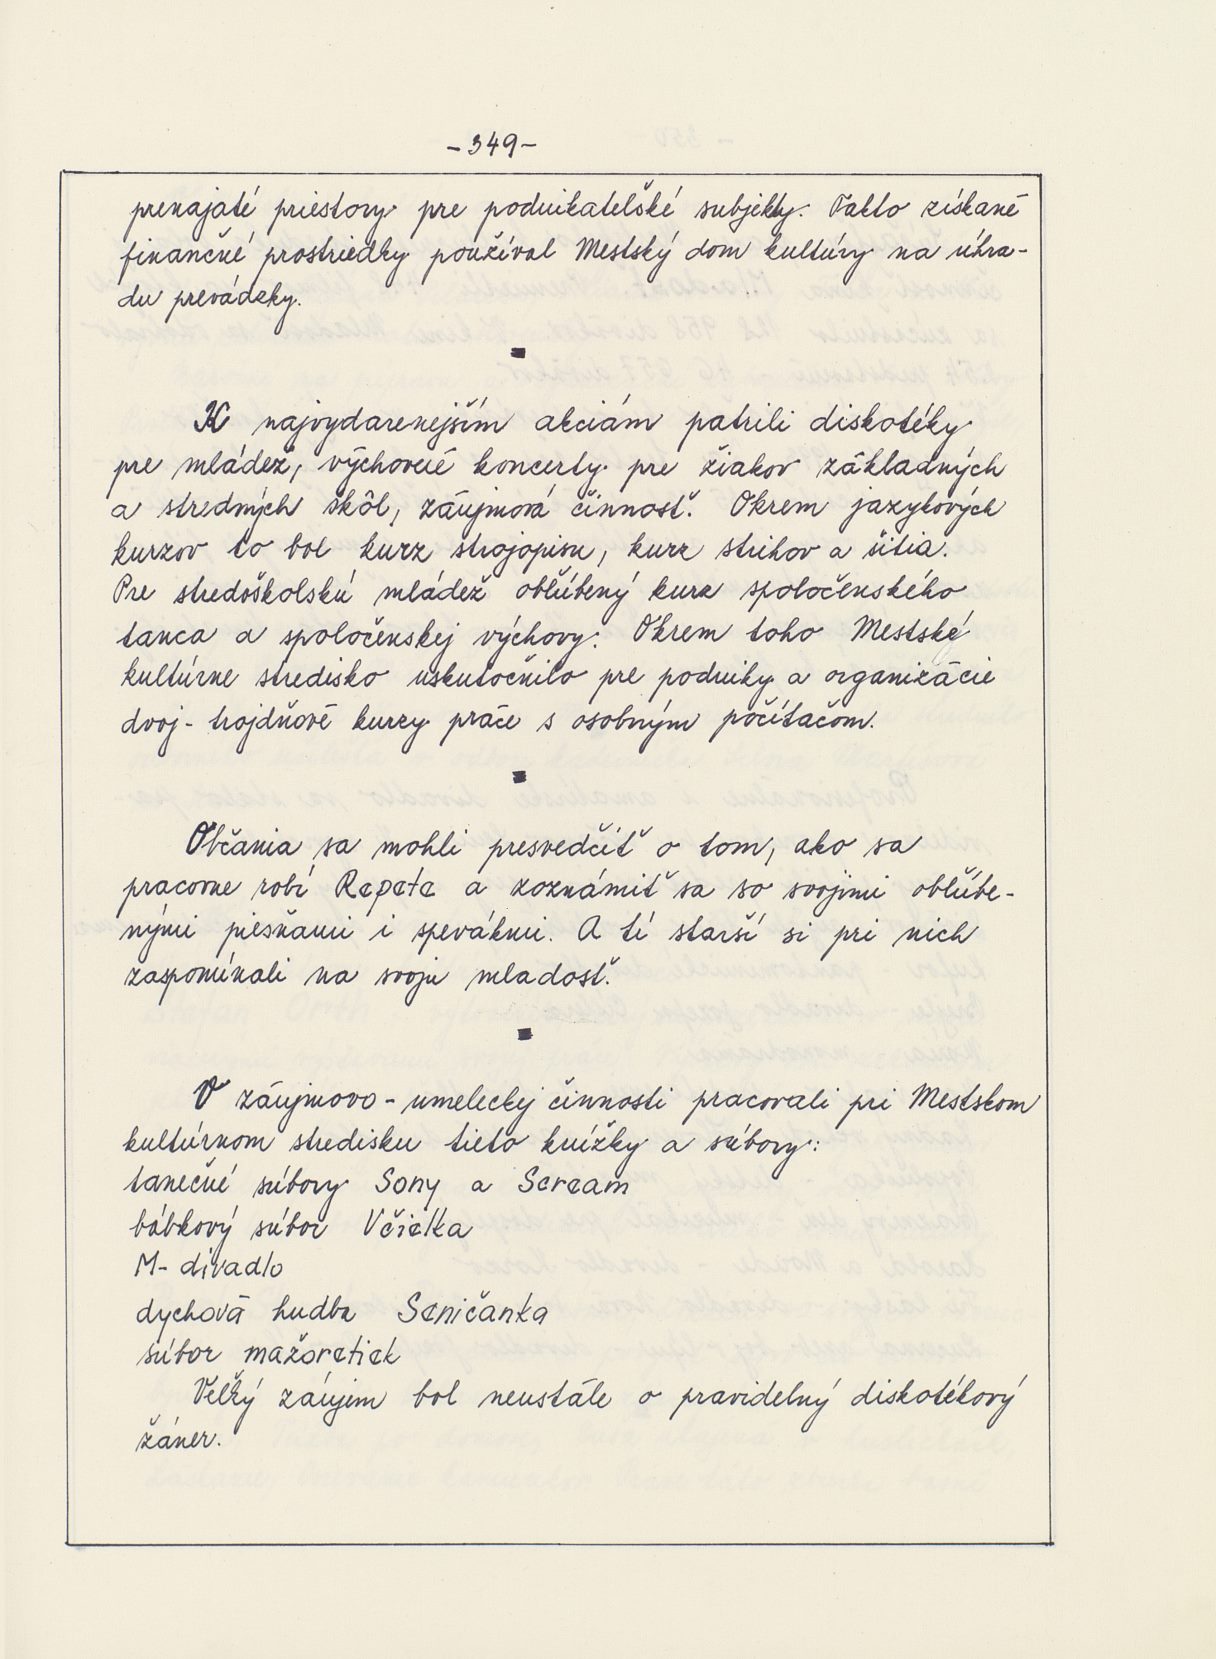 -349-
prenajaté priestory pre podnikateľské subjekty. Takto získané
finančné prostriedky používal Mestský dom kultúry na úhra-
du prevádzky.
K najvydarenejším akciám patrili diskotéky
pre mládež, výchovné koncerty pre žiakov základných
a stredných škôl, záujmová činnosť. Okrem jazykových
kurzov to bol kurz strojopisu, kurz strihov a šitia.
Pre stredoškolskú mládež obľúbený kurz spoločenského
tanca a spoločenskej výchovy. Okrem toho Mestské
kultúrne stredisko uskutočnilo pre podniky a organizácie
dvoj- trojdňové kurzy práce s osobným počítačom.
Občania sa mohli presvedčiť o tom, ako sa
pracovne robí Repete a zoznámiť sa so svojimi obľúbe-
nými piesňami i spevákmi. A tí starší si pri nich
zaspomínali na svoju mladosť.
V záujmovo-umeleckej činnosti pracovali pri Mestskom
kultúrnom stredisku tieto krúžky a súbory:
tanečné súbory Sony a Scream
bábkový súbor Včielka
M-divadlo
dychová hudba Seničanka
súbor mažoretiek
Veľký záujem bol neustále o pravidelný diskotékový
žáner.